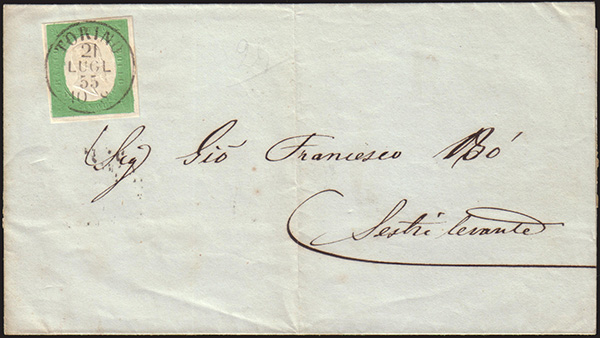 TORINO
21
LUGL
55
10 S
Sig Gió Francesco Bó
Sestri levante